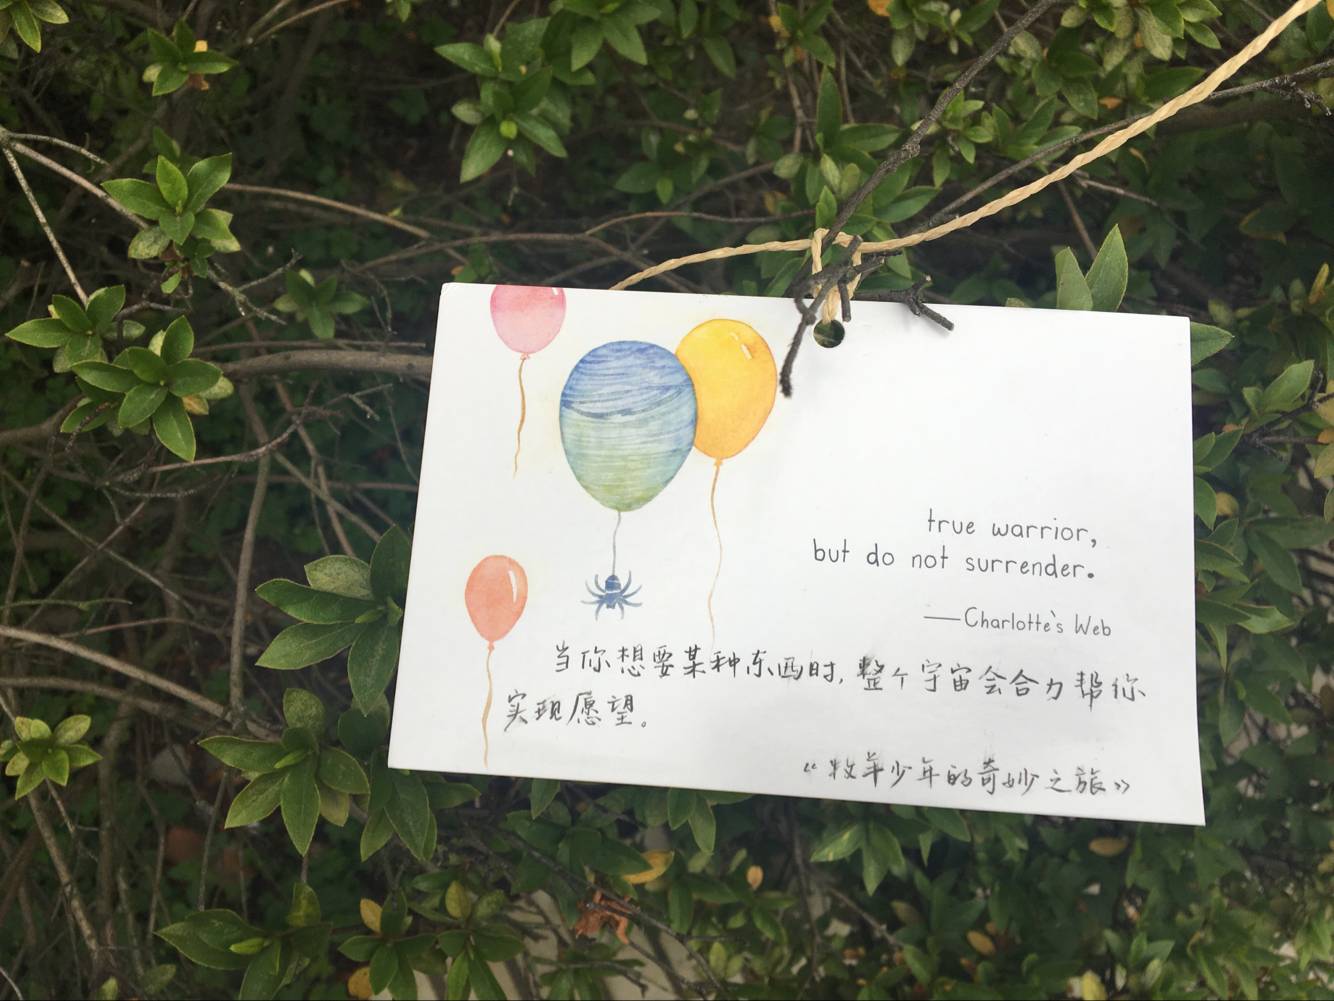 true warrior,
but do not surrender.
——Charlotte's Web
当你想要某种东西时,整个宇宙会合力帮你
实现愿望。
《牧羊少年的奇妙之旅》